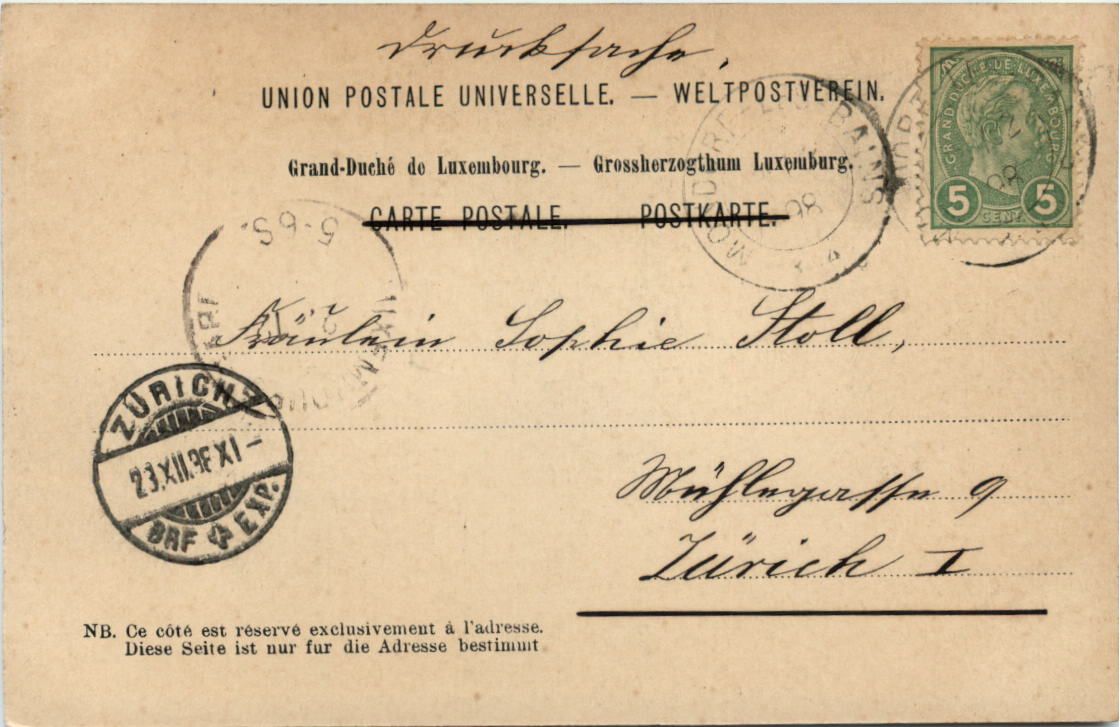 Drucksache,
UNION POSTALE UNIVERSELLE. — WELTPOSTVEREIN.
Grand-Duché de Luxembourg. — Grossherzogthum Luxemburg.
CARTE POSTALE. POSTKARTE.
GRAND-DUCHÉ-DE-LUXEMBOURG
5 CENT. 5
MONDORF-LES-BAINS
98
5-6S.
Fräulein Sophie Stoll,
ZÜRICH
23.XII.98 XI-
BRF EXP.
Mühlegasse 9
Zürich I
NB. Ce côté est réservé exclusivement à l'adresse.
Diese Seite ist nur fur die Adresse bestimmt